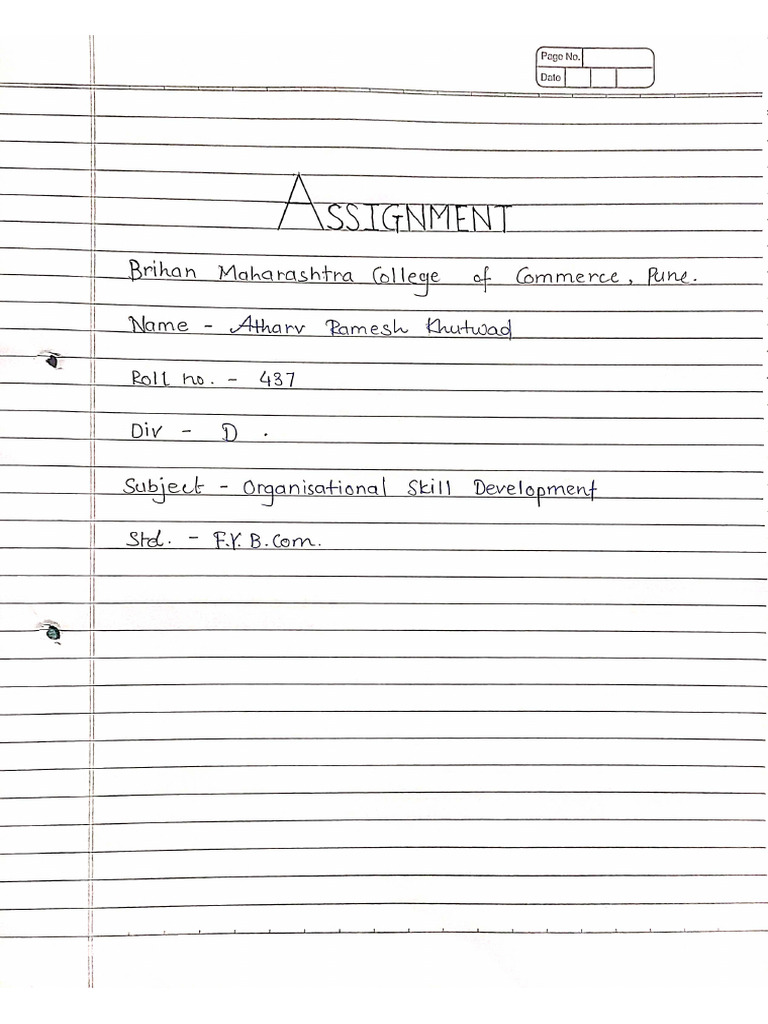 Page No.
Date
ASSIGNMENT
Brihan Maharashtra College of Commerce, Pune.
Name - Atharv Ramesh Khutwad
Roll no. - 437
Div - D .
Subject - Organisational Skill Development
Std. - F.Y. B.Com.